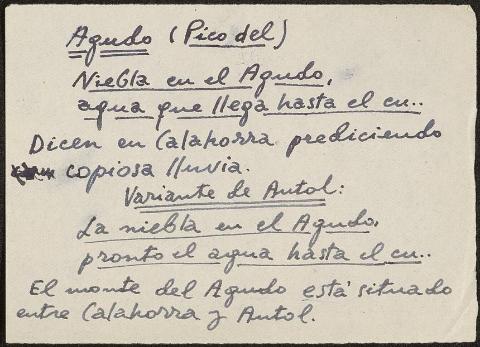 Agudo (Pico del)
Niebla en el Agudo,
agua que llega hasta el cu..
Dicen en Calahorra prediciendo
copiosa lluvia.
Variante de Autol:
La niebla en el Agudo,
pronto el agua hasta el cu..
El monte del Agudo está situado
entre Calahorra y Autol.